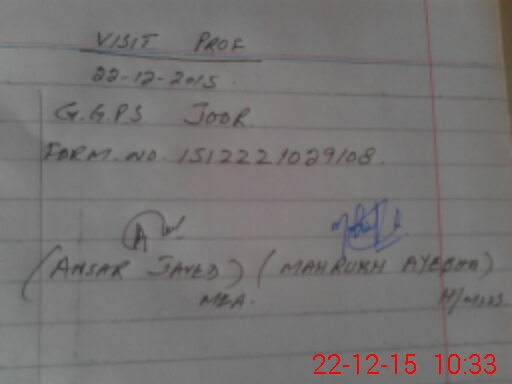 VISIT PROF
22-12-2015.
G.G.P.S JOOR.
FORM. NO. 1512221029108.
(ANSAR JAVED) (MAHRUKH AYESHA)
MEA. H/MISS.
22-12-15 10:33